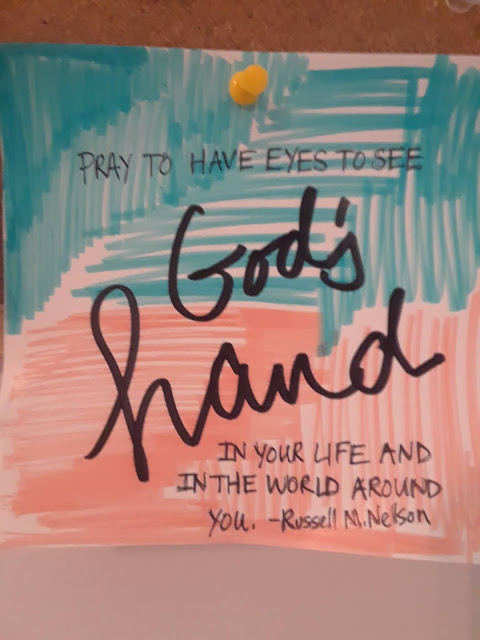 PRAY TO HAVE EYES TO SEE
God's
hand
IN YOUR LIFE AND
IN THE WORLD AROUND
YOU. -Russell M. Nelson